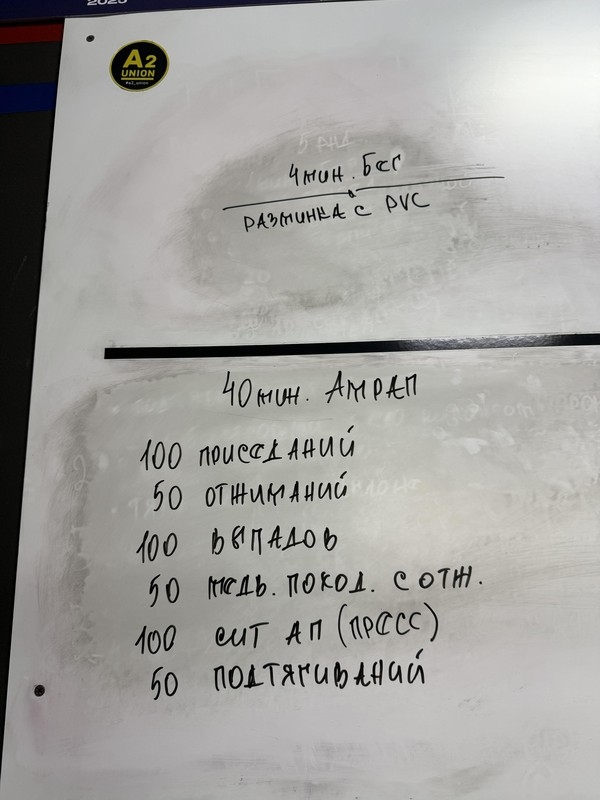 2025
A2
UNION
4 мин. бег
РАЗМИНКА С PVC
40 мин. АМРАП
100 ПРИСЕДАНИЙ
50 ОТЖИМАНИЙ
100 ВЫПАДОВ
50 МЕДВ. ПОХОД. С ОТЖ.
100 СИТ АП (ПРЕСС)
50 ПОДТЯГИВАНИЙ